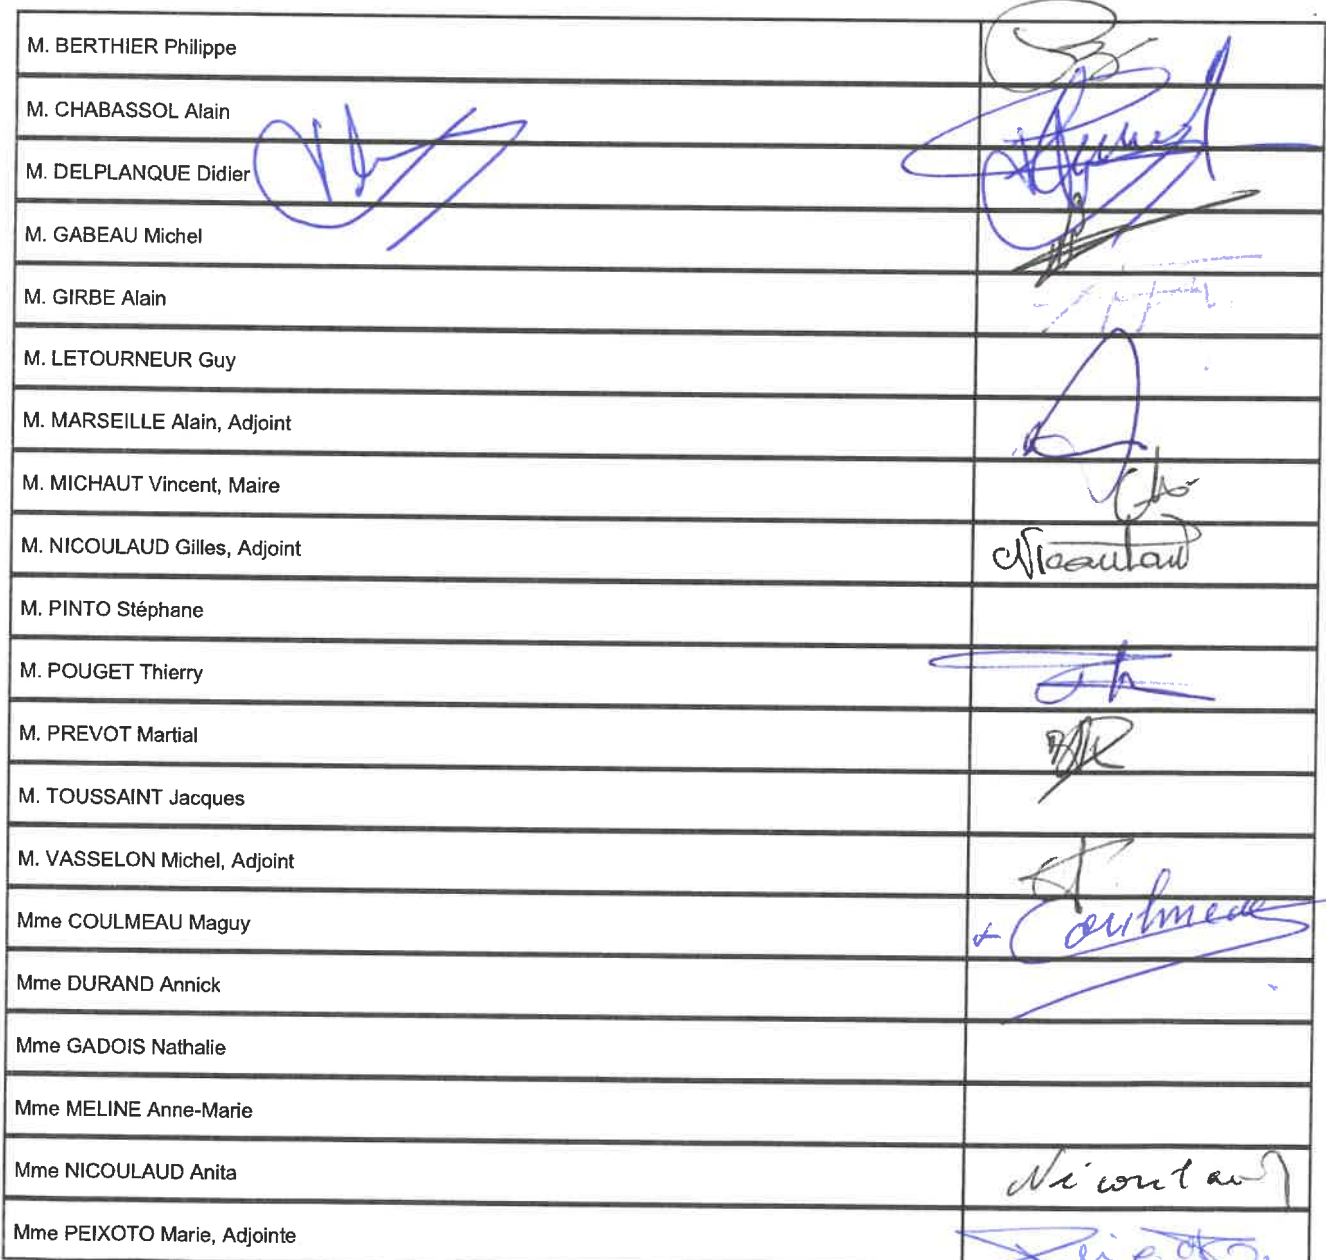 M. BERTHIER Philippe
M. CHABASSOL Alain
M. DELPLANQUE Didier
M. GABEAU Michel
M. GIRBE Alain
M. LETOURNEUR Guy
M. MARSEILLE Alain, Adjoint
M. MICHAUT Vincent, Maire
M. NICOULAUD Gilles, Adjoint
Nicoulaud
M. PINTO Stéphane
M. POUGET Thierry
M. PREVOT Martial
M. TOUSSAINT Jacques
M. VASSELON Michel, Adjoint
Mme COULMEAU Maguy
Coulmeau
Mme DURAND Annick
Mme GADOIS Nathalie
Mme MELINE Anne-Marie
Mme NICOULAUD Anita
Nicoulaud
Mme PEIXOTO Marie, Adjointe